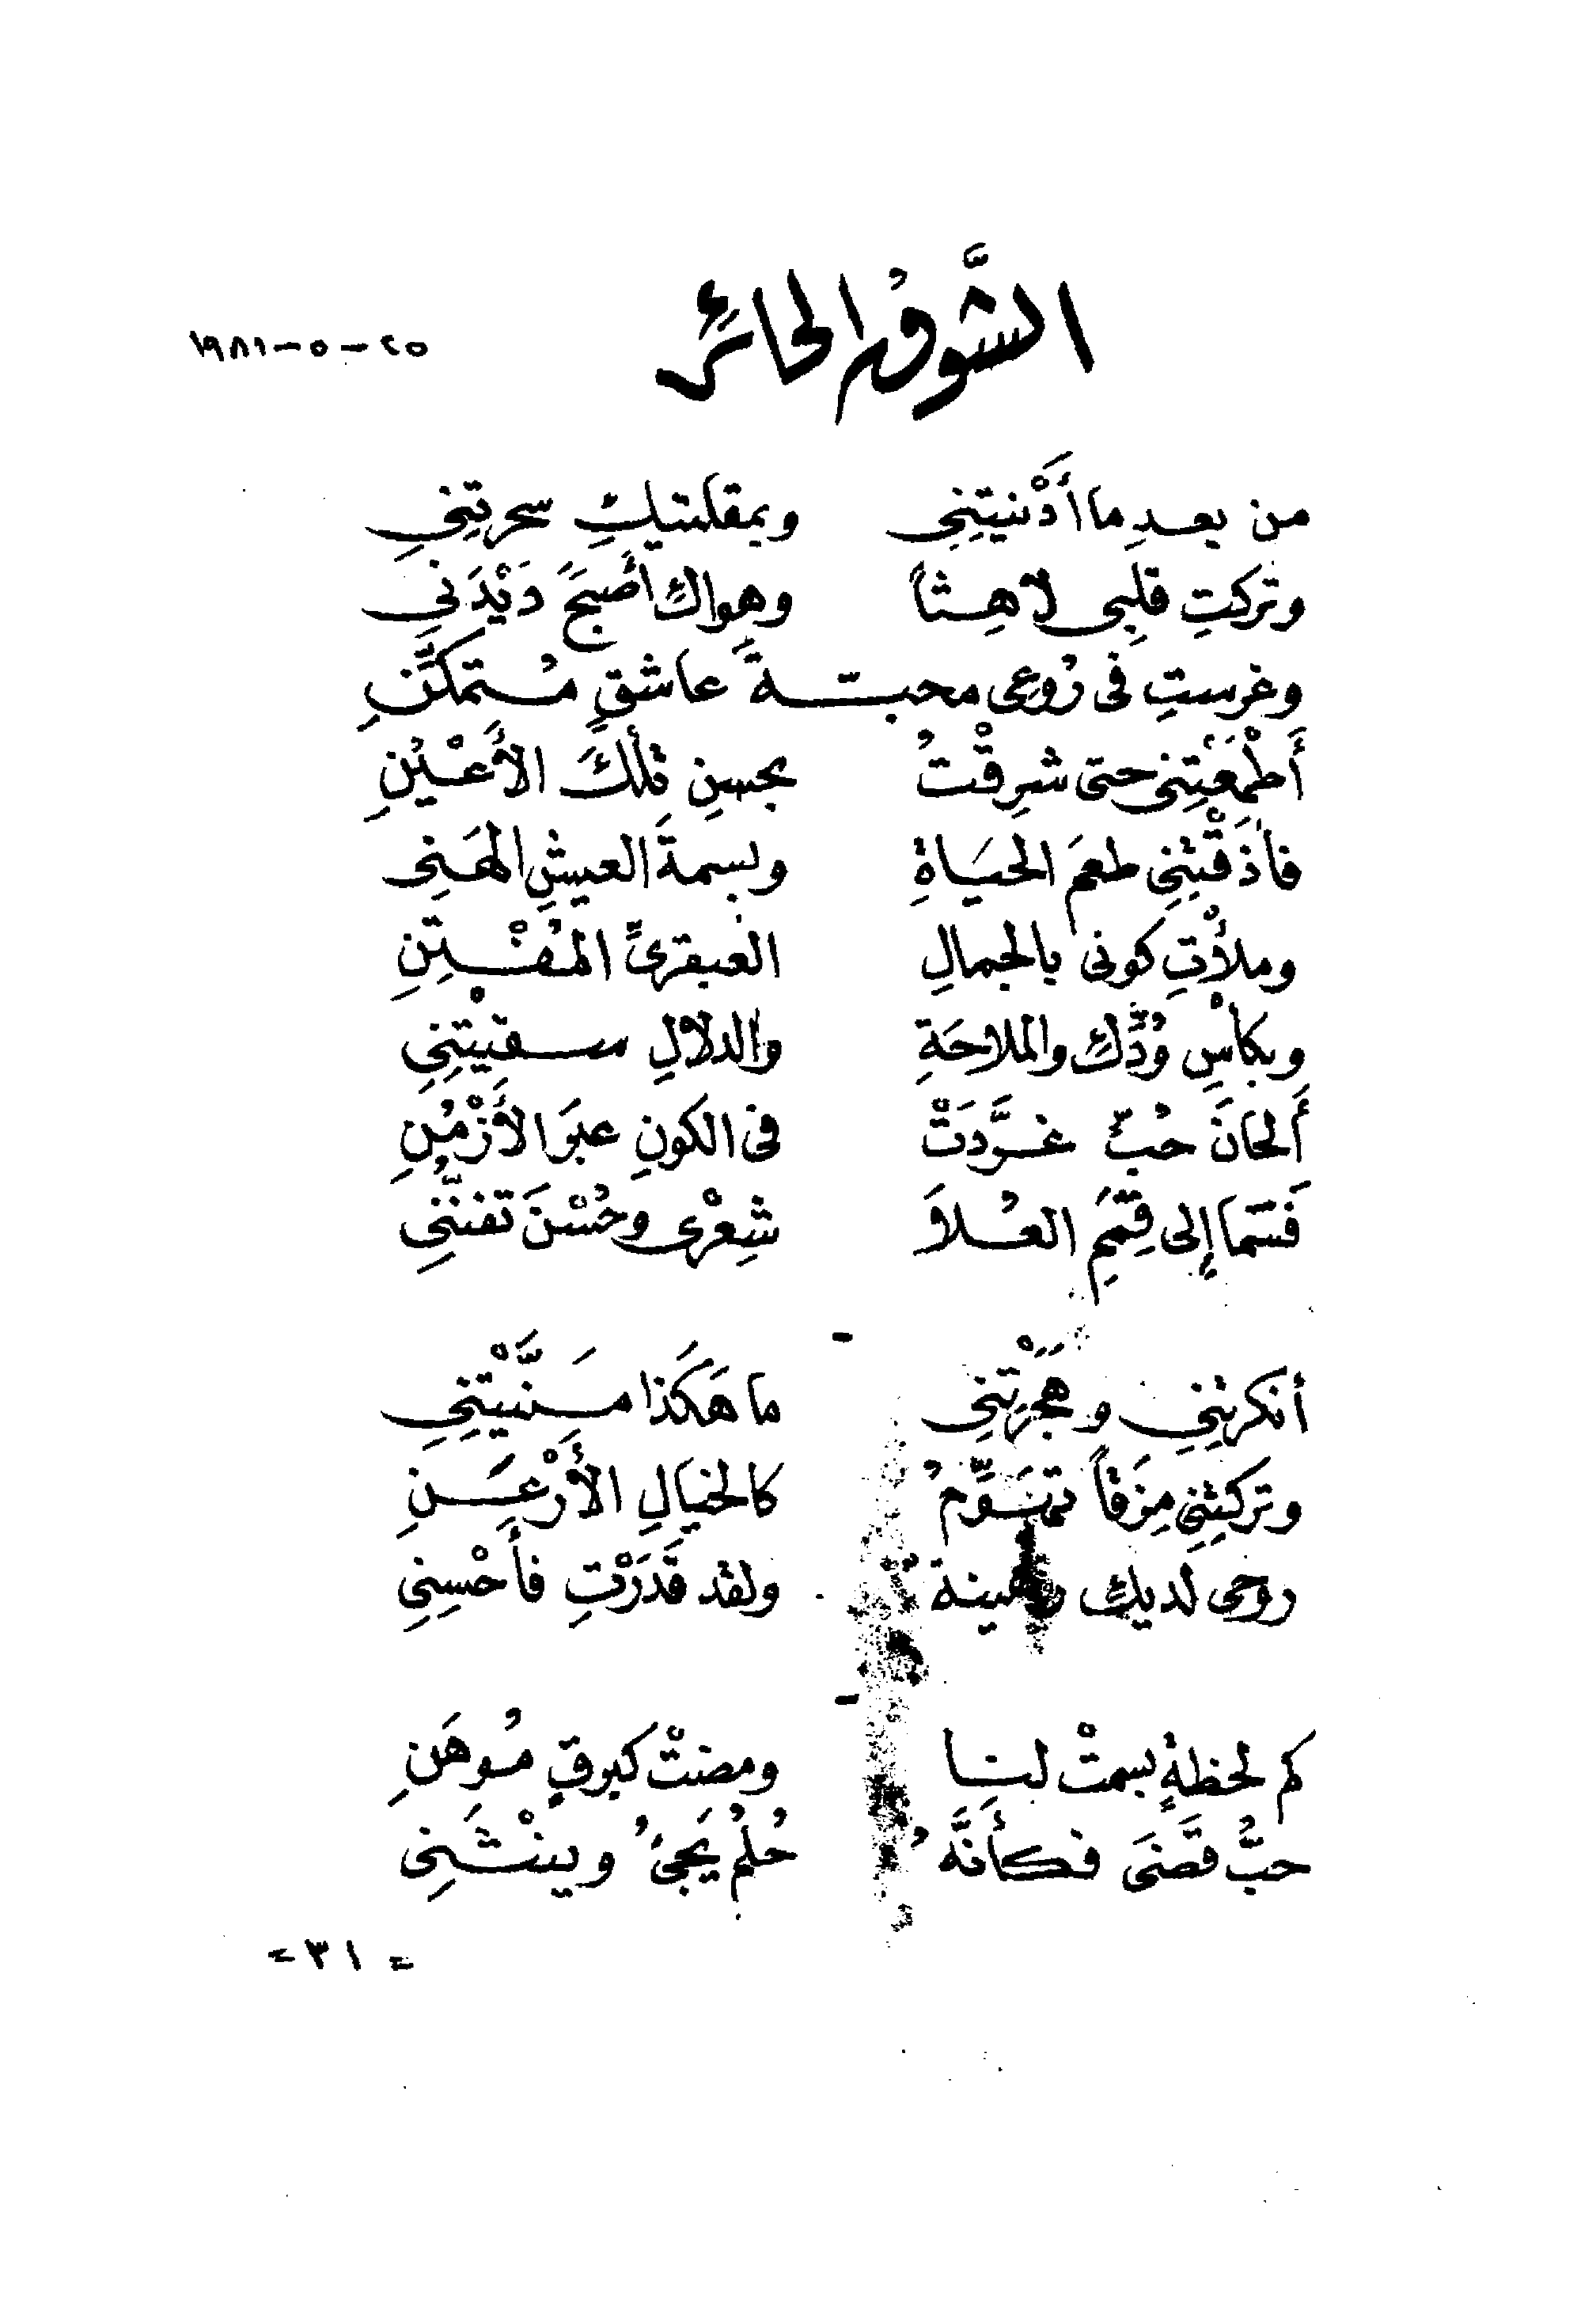 الشَّوقُ الحائِر
٢٥-٥-١٩٨١
من بعدِ ما أَدْنيتِنِى وبمقلتيكِ سحرتِنِى
وتركتِ قلبِى لاهِثاً وهواكِ أصبَحَ دَيْدَنِى
وغرستِ فى رُوعِى محبّةَ عاشقٍ مُستمكَّنِ
أَطْمَعْتِنِى حتى شرِقْتُ بحسنِ تلكَ الأَعْيُنِ
فأذَقْتِنِى طعمَ الحيَاةِ وبسمةَ العيشِ الهَنِى
وملأْتِ كونى بالجمالِ العبقرىِّ المُفْتِنِ
وبكأسِ وُدِّكِ والملاحَةِ والدلالِ سقيْتِنِى
أَلحانَ حُبٍّ غرَّدَتْ فى الكونِ عبرَ الأَزْمُنِ
فَسَمَا إِلى قِمَمِ العُلاَ شِعْرِى وحُسْنَ تفنُّنِى
-
أنكرتِنِى وهَجَرْتِنِى ما هَكَذا مَنَّيْتِنِى
وتركتِنِى مِزَقاً تَهَوِّمُ كالخيالِ الأَرْعَنِ
روحى لديكِ رهينةٌ ولقد قَدَرْتِ فأَحْسِنِى
-
كم لحظةٍ بسمتْ لنا ومضتْ كبرقٍ مُوهَنِ
حبٌّ قَضَى فكأَنَّهُ حُلُمٌ يَجىُٔ وينْثَنِى
= ٣١ =